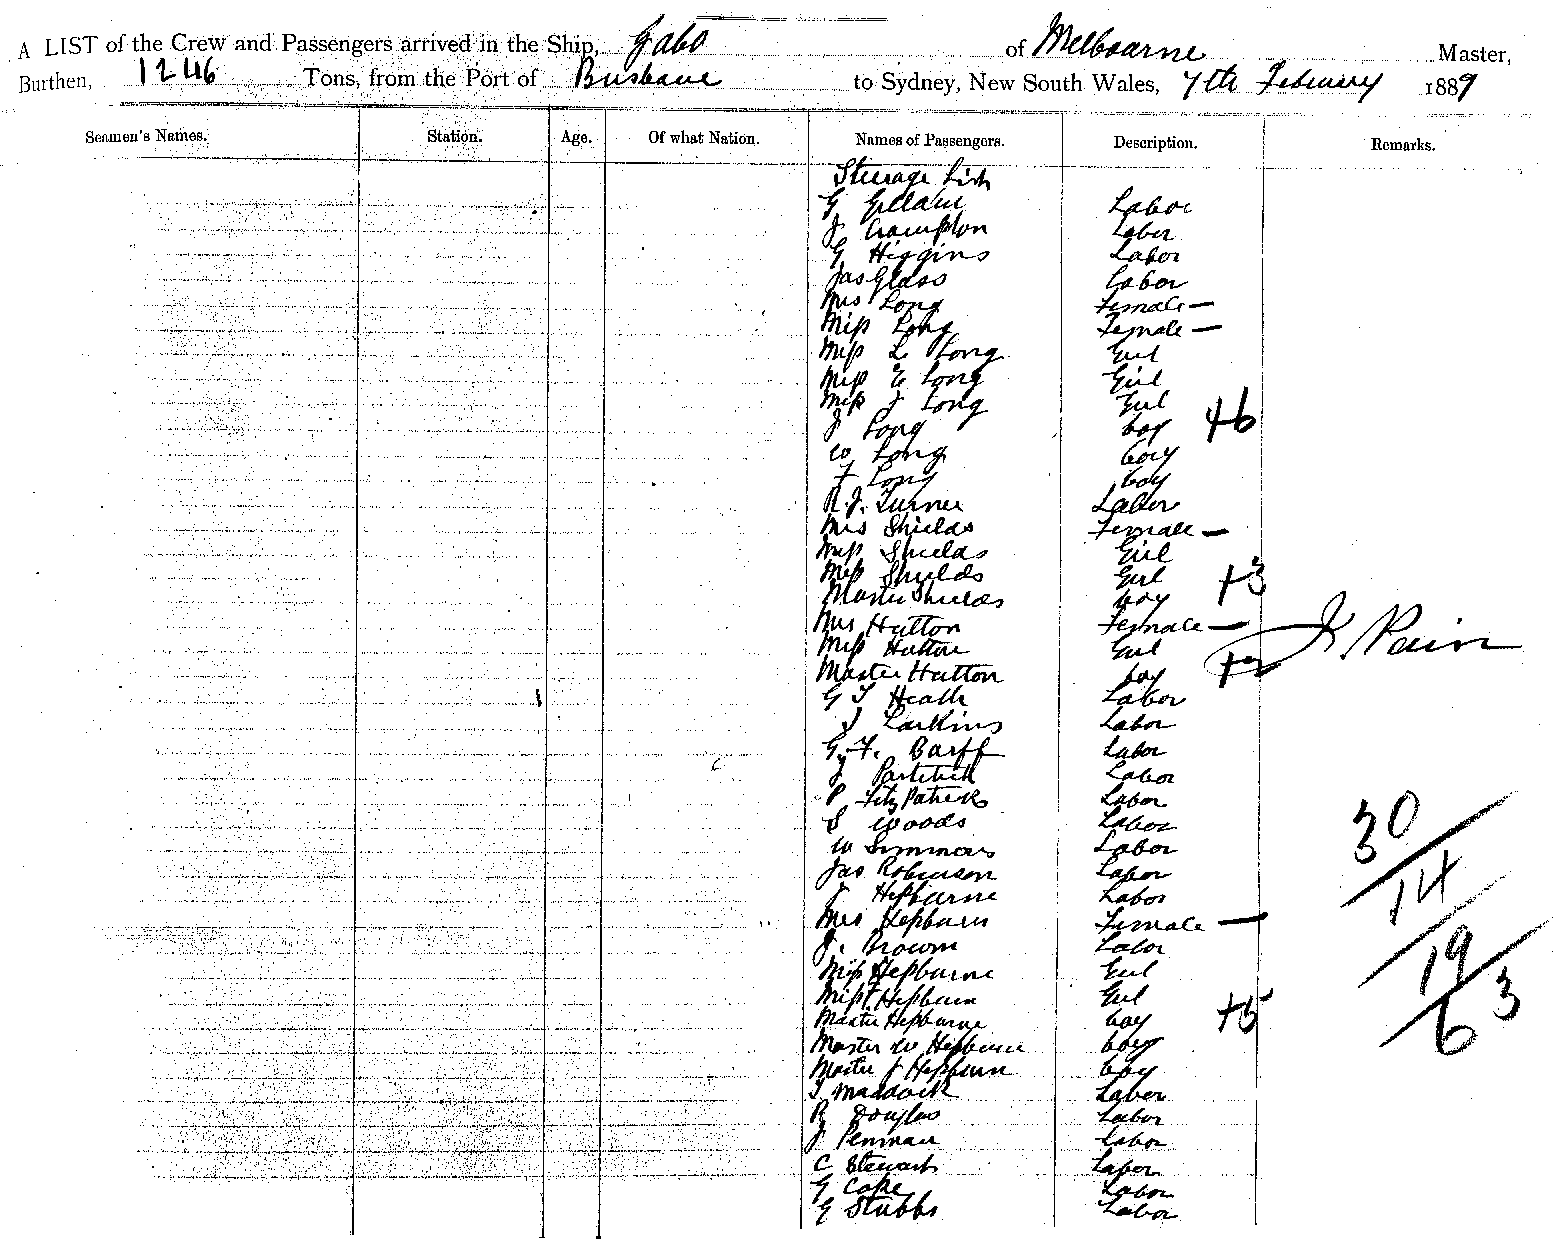 A LIST of the Crew and Passengers arrived in the Ship, Gabo of Melbourne Master,
Burthen, 1246 Tons, from the Port of Brisbane to Sydney, New South Wales, 7th February 1889
Seamen's Names. Station. Age. Of what Nation. Names of Passengers. Description. Remarks.
Steerage List
G Gillam Labor
J Crampton Labor
G Higgins Labor
Jas Glass Labor
Mrs Long Female —
Miss Long Female —
Miss L Long Girl
Miss E Long Girl
Miss J Long Girl
J Long boy +6
W Long boy
F Long boy
R.J. Turner Labor
Mrs Shields Female —
Miss Shields Girl
Miss Shields Girl +3
Master Shields boy
Mrs Hutton Female —
Miss Hutton Girl J. Pain
Master Hutton boy
G T Heath Labor
J Larkins Labor
G. F. Barff Labor
J Labor
P FitzPatrick Labor
S Woods Labor
W Simmons Labor
Jas Robinson Labor
J Hepburne Labor
Mrs Hepburn Female —
J. Brown Labor
Miss Hepburne Girl
Miss F Hepburn Girl
Master Hepburne boy +5
Master W Hepburne boy
Master J Hepburn boy
T Maddock Labor
R Douglas Labor
J Penman Labor
C Stewart Labor
G Cope Labor
G Stubbs Labor
30
14
19
63